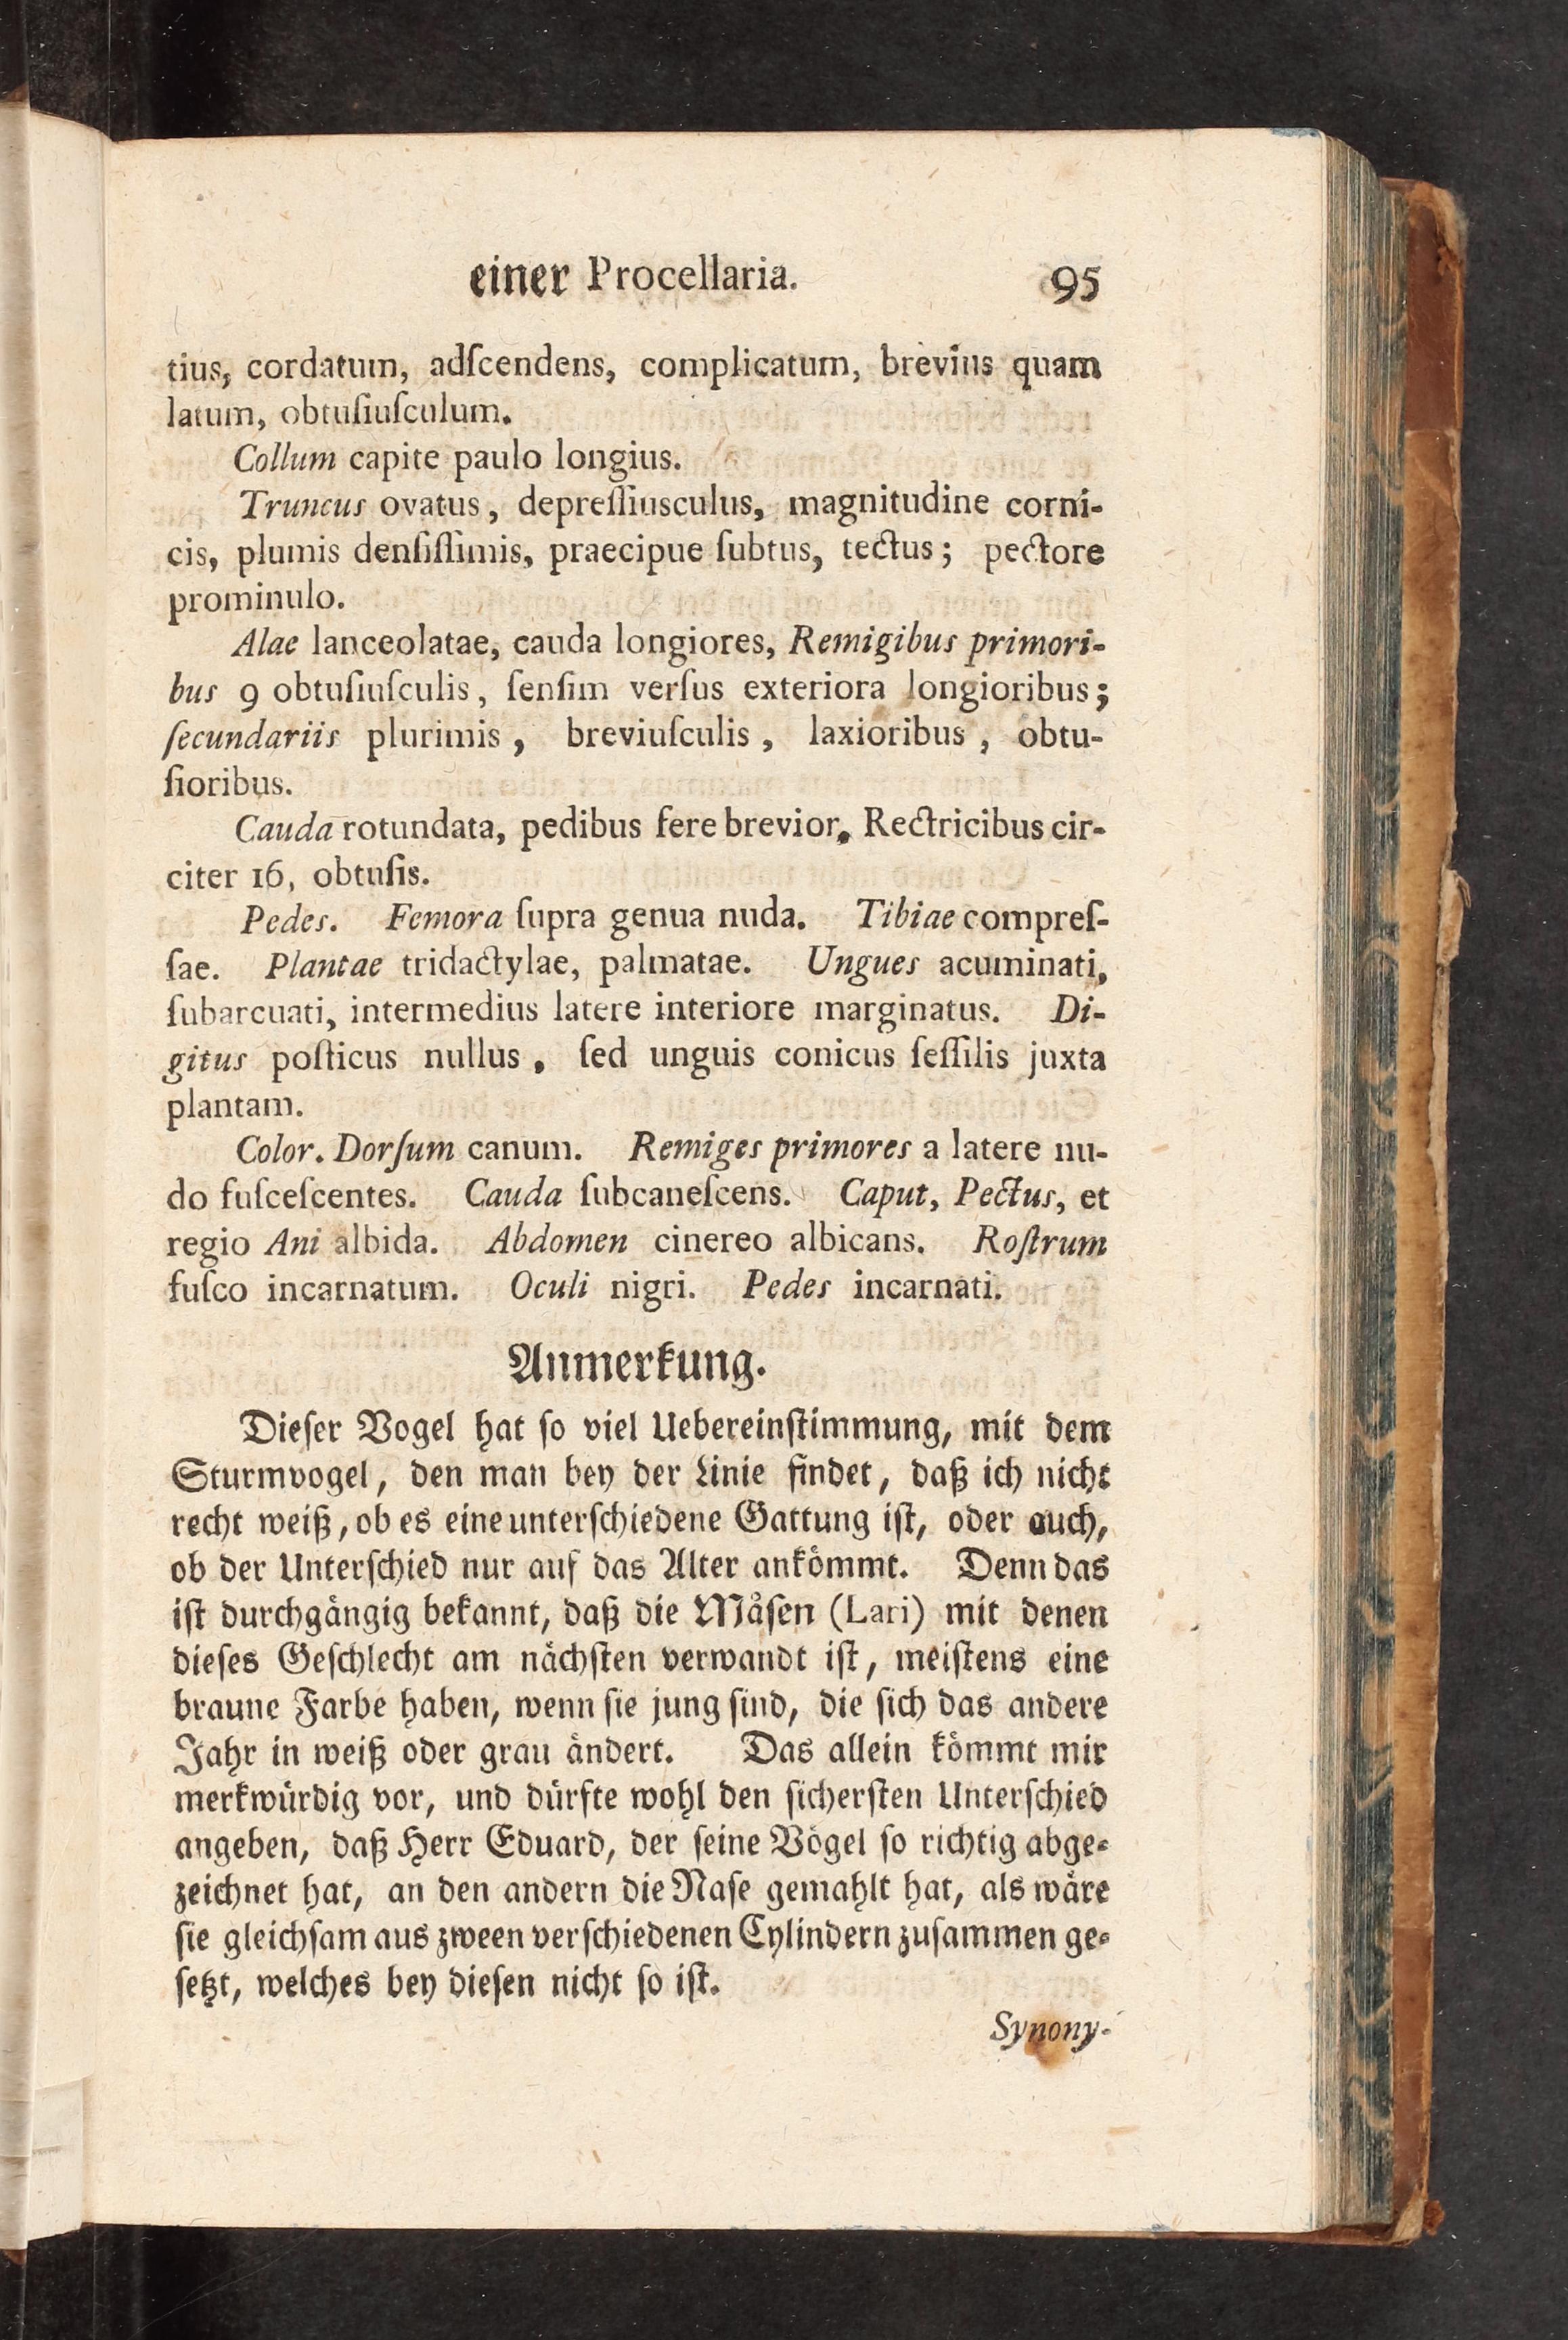 einer Procellaria. 95
tius, cordatum, adſcendens, complicatum, brevius quam
latum, obtuſiuſculum.
Collum capite paulo longius.
Truncus ovatus, depreſſiusculus, magnitudine corni-
cis, plumis denſiſſimis, praecipue ſubtus, tectus; pectore
prominulo.
Alae lanceolatae, cauda longiores, Remigibus primori-
bus 9 obtuſiuſculis, ſenſim verſus exteriora longioribus;
ſecundariis plurimis, breviuſculis, laxioribus, obtu-
ſioribus.
Cauda rotundata, pedibus fere brevior. Rectricibus cir-
citer 16, obtuſis.
Pedes. Femora ſupra genua nuda. Tibiae compreſ-
ſae. Plantae tridactylae, palmatae. Ungues acuminati,
ſubarcuati, intermedius latere interiore marginatus. Di-
gitus poſticus nullus, ſed unguis conicus ſeſſilis juxta
plantam.
Color. Dorſum canum. Remiges primores a latere nu-
do fuſceſcentes. Cauda ſubcaneſcens. Caput, Pectus, et
regio Ani albida. Abdomen cinereo albicans. Roſtrum
fuſco incarnatum. Oculi nigri. Pedes incarnati.
Anmerkung.
Dieſer Vogel hat ſo viel Uebereinſtimmung, mit dem
Sturmvogel, den man bey der Linie findet, daß ich nicht
recht weiß, ob es eine unterſchiedene Gattung iſt, oder auch,
ob der Unterſchied nur auf das Alter ankömmt. Denn das
iſt durchgängig bekannt, daß die Mäſen (Lari) mit denen
dieſes Geſchlecht am nächſten verwandt iſt, meiſtens eine
braune Farbe haben, wenn ſie jung ſind, die ſich das andere
Jahr in weiß oder grau ändert. Das allein kömmt mir
merkwürdig vor, und dürfte wohl den ſicherſten Unterſchied
angeben, daß Herr Eduard, der ſeine Vögel ſo richtig abge-
zeichnet hat, an den andern die Naſe gemahlt hat, als wäre
ſie gleichſam aus zween verſchiedenen Cylindern zuſammen ge-
ſetzt, welches bey dieſen nicht ſo iſt.
Synony-